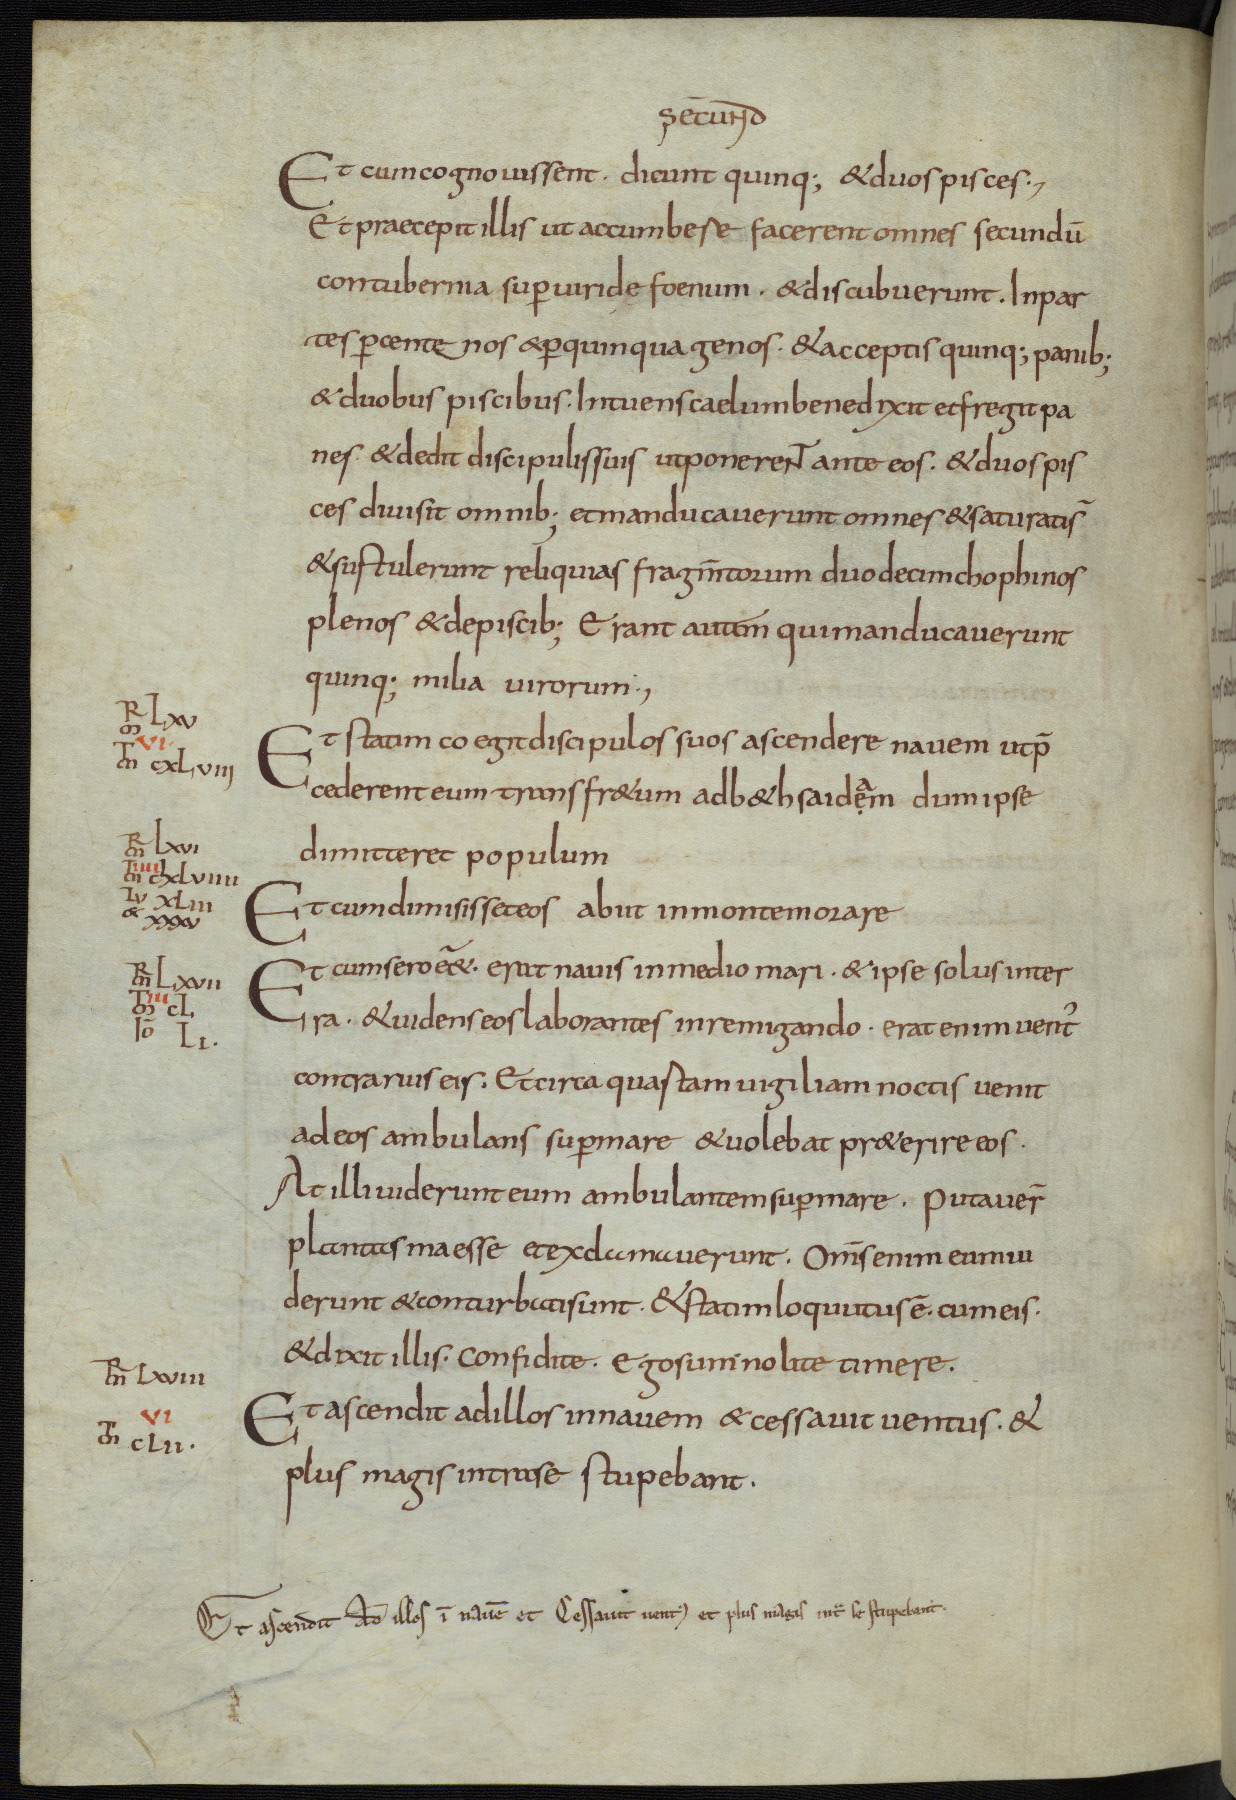 secund
Et cum cognovissent. dicunt quinq; & duos pisces.,
Et praecepit illis ut accumbese facerent omnes secundū
contubernia sup̄ viride foenum. & discubuerunt. In par
tes p̄ centenos & p̄ quinquagenos. & acceptis quinq; panib;
& duobus piscibus. Intuens caelum benedixit et fregit pa
nes. & dedit discipulis suis ut ponerent ante eos. & duos pis
ces divisit omnib; et manducaverunt omnes & saturatis̄
& sustulerunt reliquias fragm̄torum duodecim chophinos
plenos & de piscib; Erant autem̄ qui manducaverunt
quinq; milia virorum.,
R̄ LXV
m̄ VI
T̄ CXLVIII
m̄
Et statim coegit discipulos suos ascendere navem ut p̄
cederent eum trans fr&um ad b&hsaidęam dum ipse
dimitteret populum
R̄ LXVI
m̄
m̄ IIII CXLVIIII
LV XLIII
& XXXV
Et cum dimisisset eos abiit in montem orare
R̄ LXVII
m̄ IIII CL
Iō LI.
Et cum sero eē&. erat navis in medio mari. & ipse solus in ter
ra. & videns eos laborantes in remigando. erat enim vent᾿
contrarius eis. Et circa quartam vigiliam noctis venit
ad eos ambulans sup̄ mare & volebat pr&erire eos.
At illi viderunt eum ambulantem sup̄ mare. Putaver̄
plantasma esse et exclamaverunt. Om̄s enim eum vi
derunt & conturbati sunt. & statim loquutus ē. cum eis.
& dixit illis. Confidite. Ego sum nolite timere.
R̄ LXVIII
m̄ VI
T̄ CLII.
m̄
Et ascendit ad illos in navem & cessavit ventus. &
plus magis intra se stupebant.
Et ascendit Ad illos ī navē et Cessavit vent᾿ et plus magis int̄ se stupebant.